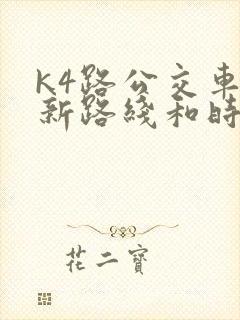 K4路公交車
新路綫和時
花二寶